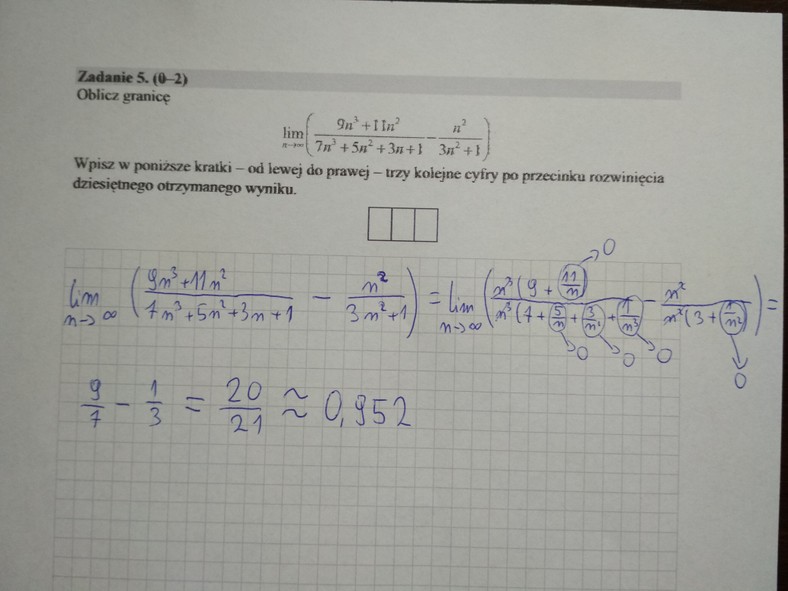 Zadanie 5. (0–2)
Oblicz granicę
lim n→∞ ( (9n³ + 11n²)/(7n³ + 5n² + 3n + 1) − n²/(3n² + 1) )
Wpisz w poniższe kratki – od lewej do prawej – trzy kolejne cyfry po przecinku rozwinięcia
dziesiętnego otrzymanego wyniku.
lim n→∞ ( (9n³ + 11n²)/(7n³ + 5n² + 3n + 1) − n²/(3n² + 1) ) = lim n→∞ ( n³(9 + 11/n)/n³(7 + 5/n + 3/n² + 1/n³) − n²/n²(3 + 1/n²) ) =
→0 →0 →0 →0 →0
9/7 − 1/3 = 20/21 ≈ 0,952